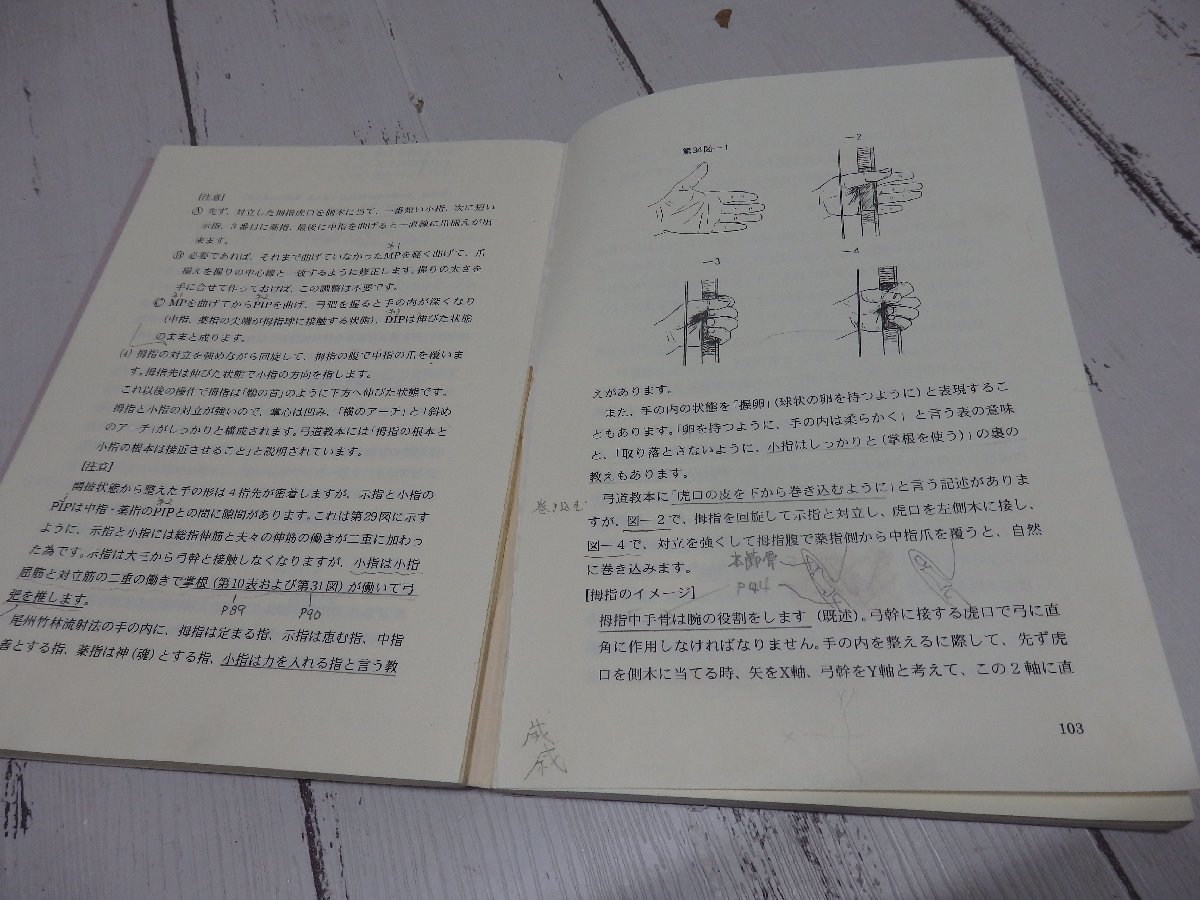 [注意]
Ⓐ 先ず、対立した拇指虎口を側木に当て、一番短い小指、次に短い
示指、3番目に薬指、最後に中指を曲げると一直線に爪揃えが出
来ます。
Ⓑ 必要であれば、それまで曲げていなかったMPを軽く曲げて、爪
揃えを握りの中心線と一致するように修正します。握りの太さを
手に合せて作っておけば、この調整は不要です。
Ⓒ MPを曲げてからPIPを曲げ、弓把を握ると手の内が深くなり
(中指、薬指の尖端が拇指球に接触する状態)、DIPは伸びた状態
のままと成ります。
(4) 拇指の対立を強めながら回旋して、拇指の腹で中指の爪を覆いま
す。拇指先は伸びた状態で小指の方向を指します。
これ以後の操作で拇指は「樋の首」のように下方へ伸びた状態です。
拇指と小指の対立が強いので、掌心は凹み、「横のアーチ」と「斜め
のアーチ」がしっかりと構成されます。弓道教本には「拇指の根本と
小指の根本は接近させること」と説明されています。
[注意]
開披状態から整えた手の形は4指先が密着しますが、示指と小指の
PIPは中指・薬指のPIPとの間に隙間があります。これは第29図に示す
ように、示指と小指には総指伸筋と夫々の伸筋の働きが二重に加わっ
た為です。示指は大三から弓幹と接触しなくなりますが、小指は小指
屈筋と対立筋の二重の働きで掌根(第10表および第31図)が働いて弓
把を推します。
P89 P90
尾州竹林流射法の手の内に、拇指は定まる指、示指は恵む指、中指
善とする指、薬指は神(魂)とする指、小指は力を入れる指と言う教
第34図-1
-2
-3
-4
えがあります。
また、手の内の状態を「握卵」(球状の卵を持つように)と表現するこ
ともあります。「卵を持つように、手の内は柔らかく」と言う表の意味
と、「取り落とさないように、小指はしっかりと(掌根を使う)」の裏の
教えもあります。
弓道教本に「虎口の皮を下から巻き込むように」と言う記述がありま
巻き込む
すが、図-2で、拇指を回旋して示指と対立し、虎口を左側木に接し、
図-4で、対立を強くして拇指腹で薬指側から中指爪を覆うと、自然
に巻き込みます。
本節骨
P44
[拇指のイメージ]
拇指中手骨は腕の役割をします(既述)。弓幹に接する虎口で弓に直
角に作用しなければなりません。手の内を整えるに際して、先ず虎
口を側木に当てる時、矢をX軸、弓幹をY軸と考えて、この2軸に直
X
Y
103